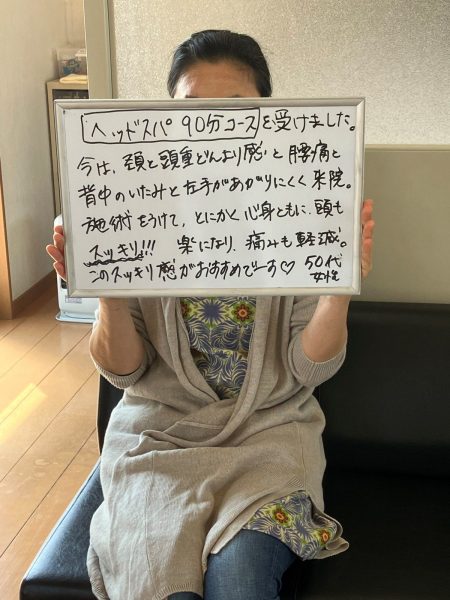 ヘッドスパ 90分コースを受けました。
今は、頚と頭重どんより感と腰痛と
背中のいたみと左手があがりにくく来院。
施術をうけて、とにかく心身ともに、頭も
スッキリ!!! 楽になり、痛みも軽減。
このスッキリ感がおすすめでーす♡ 50代
女性